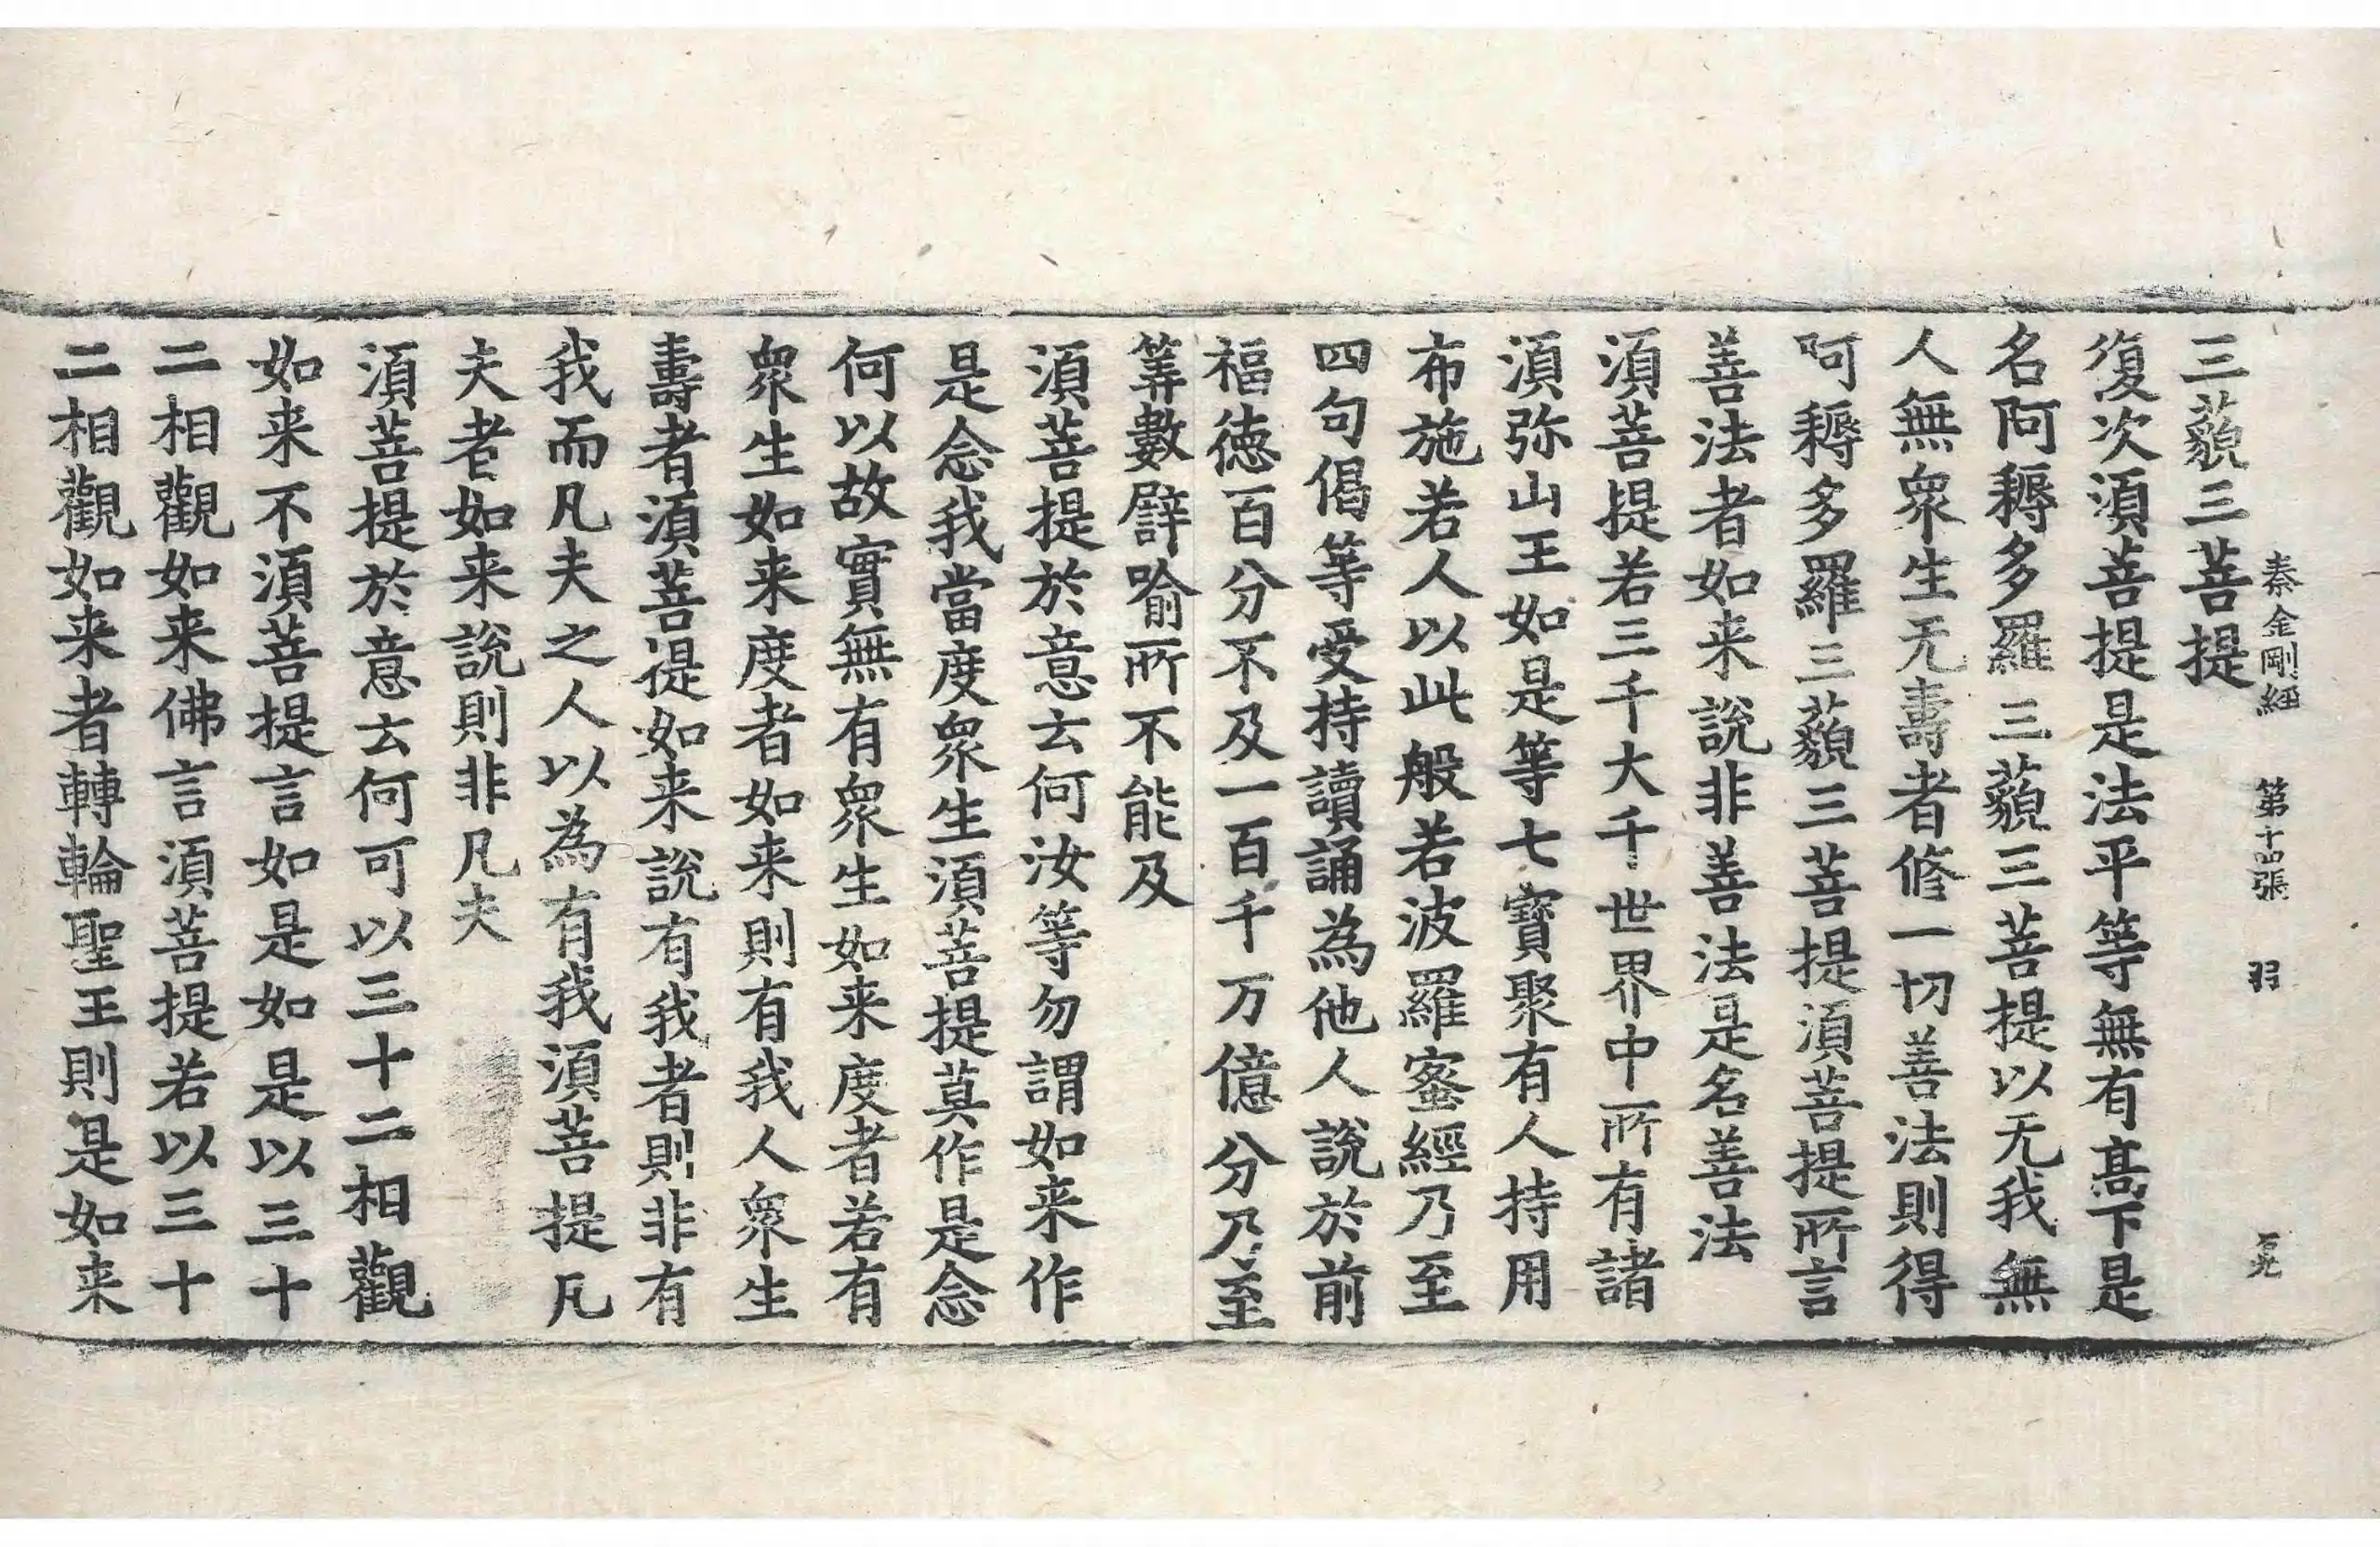 秦金剛經 第十四張 羽
三藐三菩提
復次須菩提是法平等無有高下是
名阿耨多羅三藐三菩提以无我無
人無衆生无壽者修一切善法則得
阿耨多羅三藐三菩提須菩提所言
善法者如来說非善法是名善法
須菩提若三千大千世界中所有諸
須弥山王如是等七寶聚有人持用
布施若人以此般若波羅蜜經乃至
四句偈等受持讀誦為他人說於前
福徳百分不及一百千万億分乃至
筭數譬喻所不能及
須菩提於意云何汝等勿謂如来作
是念我當度衆生須菩提莫作是念
何以故實無有衆生如来度者若有
衆生如来度者如来則有我人衆生
壽者須菩提如来說有我者則非有
我而凡夫之人以為有我須菩提凡
夫者如来說則非凡夫
須菩提於意云何可以三十二相觀
如来不須菩提言如是如是以三十
二相觀如来佛言須菩提若以三十
二相觀如来者轉輪聖王則是如来